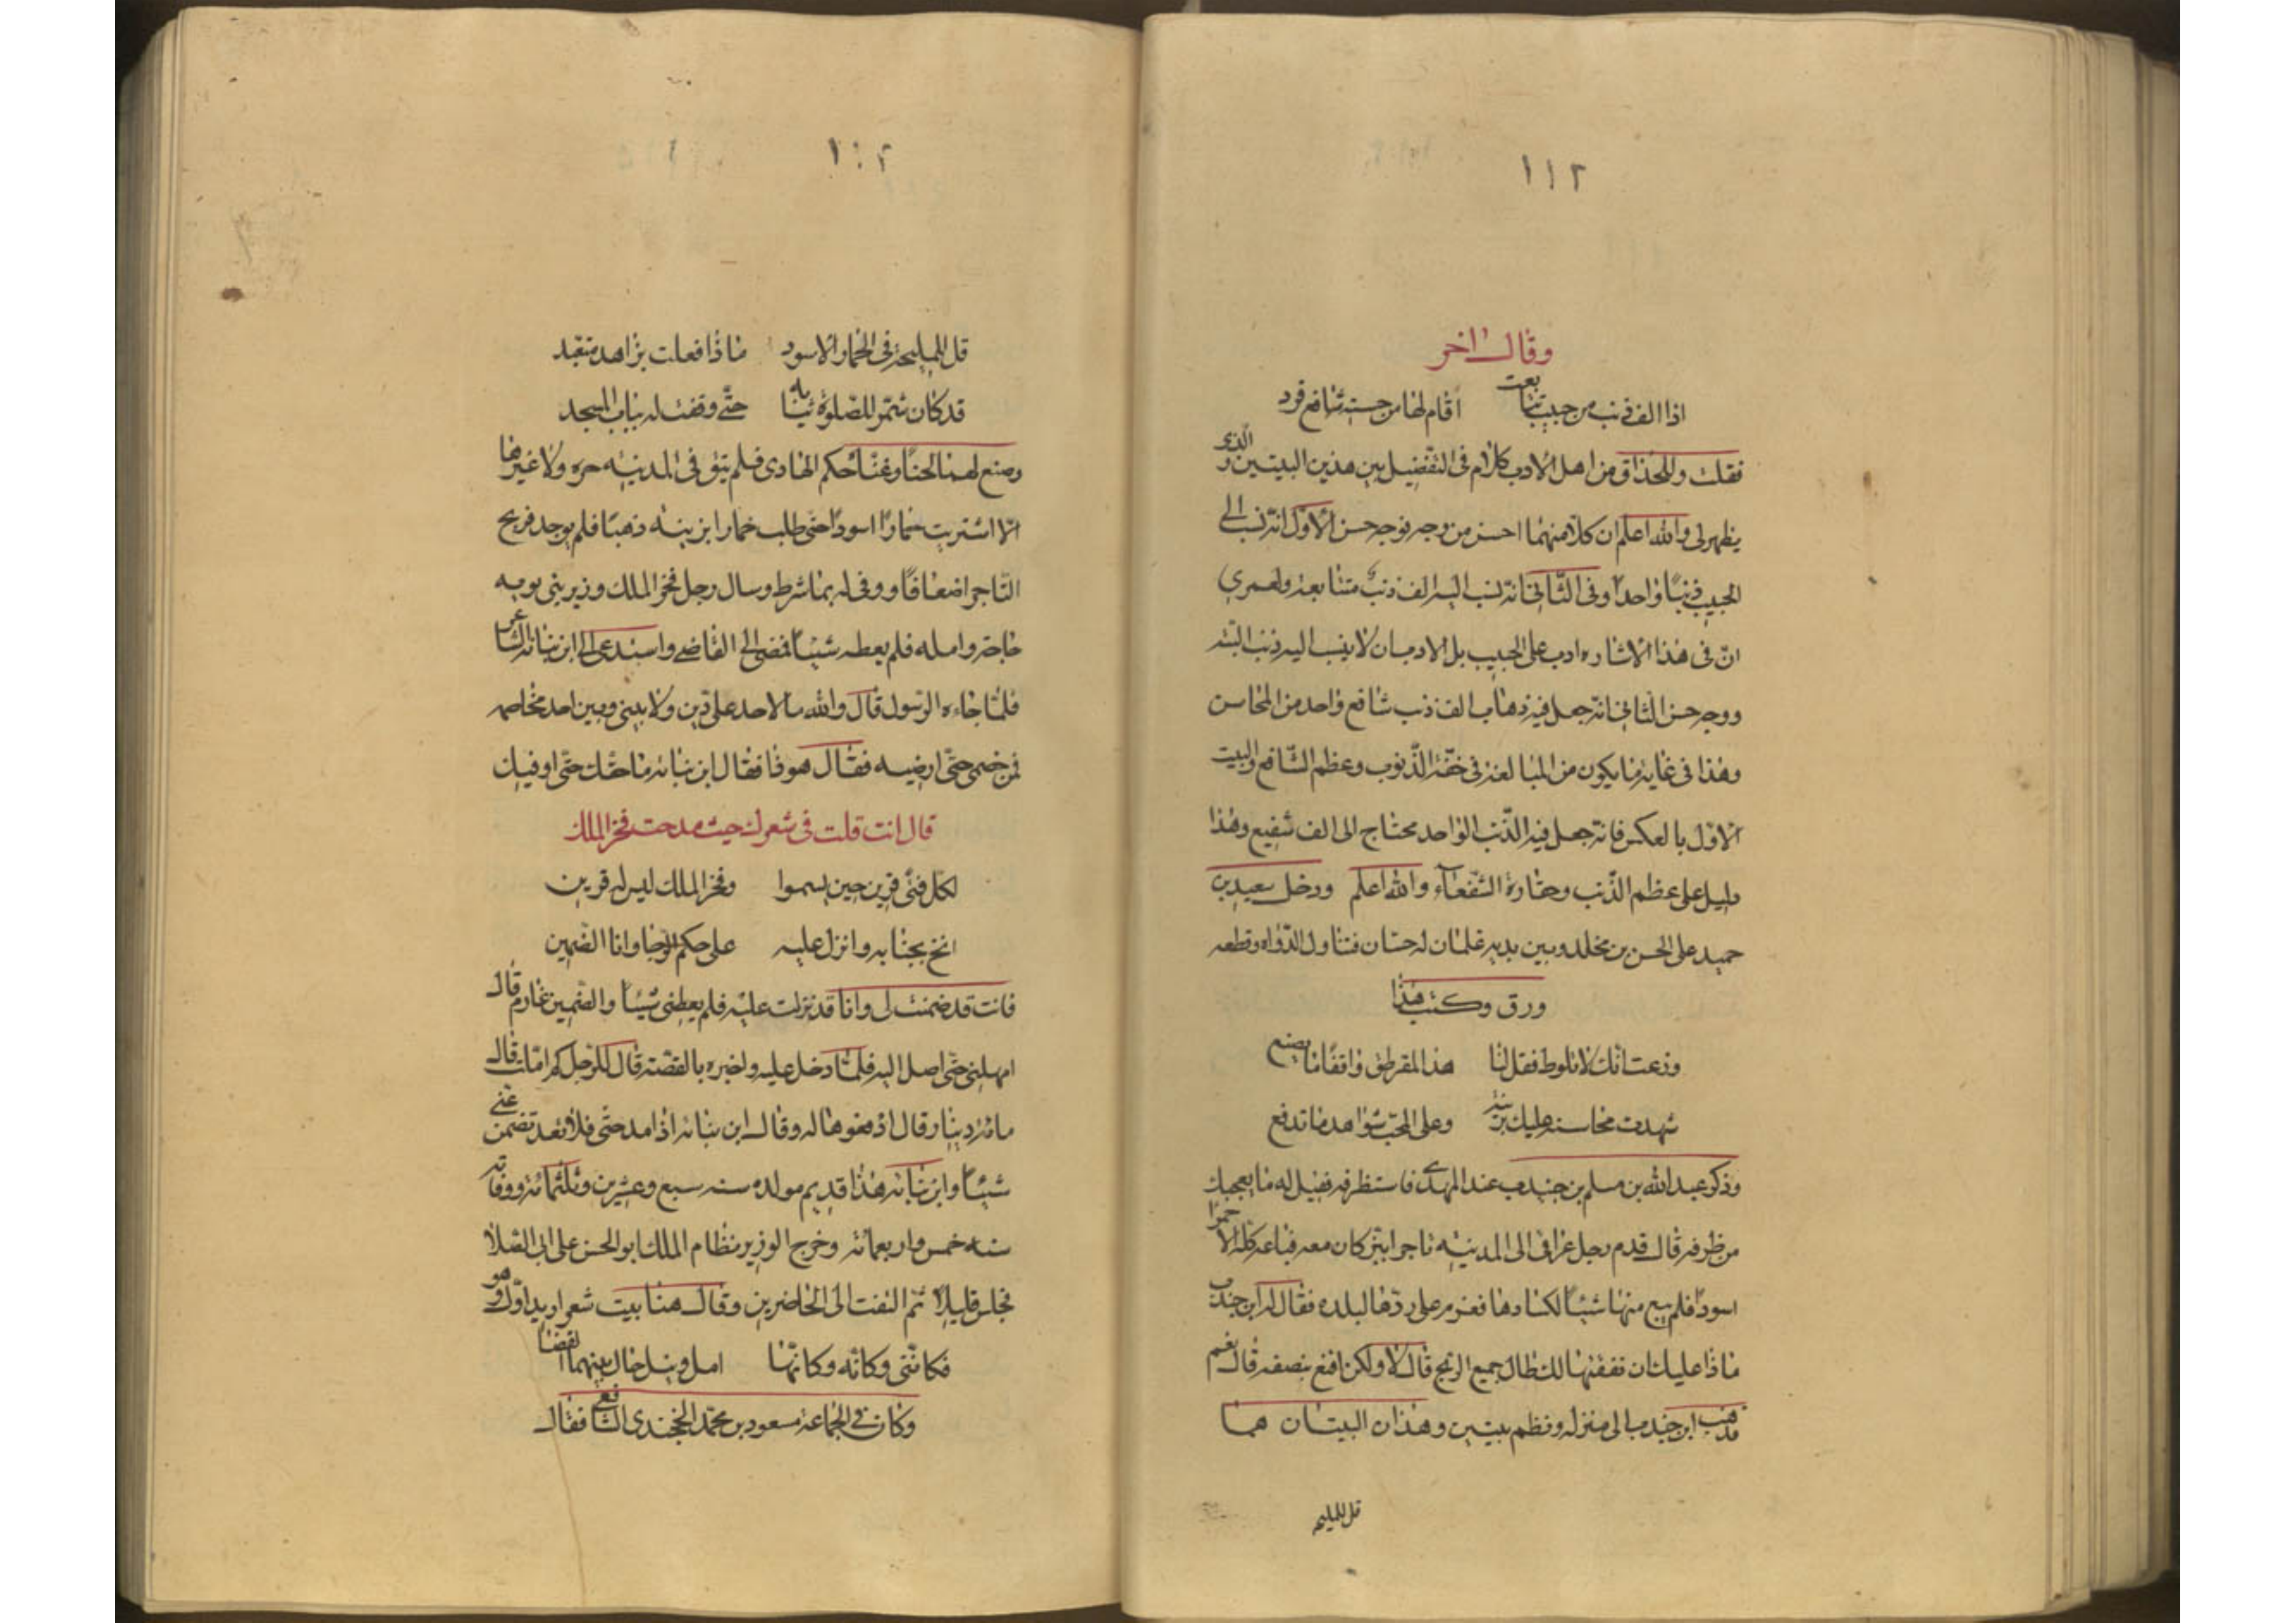 ١١٢
وقال اخر
اذا الف ذنب من حبيب تتابعت اقام لها من حسنه شافع فرد
فقلت وللحذاق من اهل الادب كلام فى التفضيل بين هذين البيتين والذى
يظهر لى والله اعلم ان كلا منهما احسن من وجه فوجه حسن الاول انه نسب الى
الحبيب ذنبًا واحدًا وفى الثانى انه نسب اليه الف ذنب متتابعة ولعمرى
ان فى هذا الاشاره ادب على الحبيب بل الادب ان لا ينسب اليه ذنب البته
ووجه حسن الثانى انه جعل فيه ذهاب الف ذنب شافع واحد من المحاسن
وهذا فى غاية ما يكون من المبالغة فى خفّة الذّنوب وعظم الشّافع والبيت
الاوّل بالعكس فانه جعل فيه الذّنب الواحد محتاج الى الف شفيع وهذا
دليل على عظم الذّنب وحقارة الشّفعآء والله اعلم ودخل سعيد بن
حميد على الحسن بن مخلد وبين يديه غلمان له حسان فتناول الدّواه وقطعه
ورق وكتب هذا
وزعمت انك لا تلوط فقل لنا هذا المقرطق واقفًا ما يصنع
شهدت محاسنه عليك بريبة وعلى المحبّ شواهد ما تدفع
وذكر عبد الله بن مسلم بن جندب عند المهدى فاستظرفه فقيل له ما يعجبك
من ظرفه قال قدم رجل عراقى الى المدينه تاجرا ببز كان معه فباعه كله الا خمرًا
اسودًا فلم يبع منها شيئًا لكسادها فعزم على ردّها لبلده فقال له ابن جندب
ماذا عليك ان نفقتها لك تطال جميع الربح قال لا ولكن اقنع بنصفه قال نعم
فذهب ابن جندب الى منزله ونظم بيتين وهذان البيتان هما
قل للمليحه
قل للمليحة فى الخمار الاسود ماذا فعلت بزاهد متعبد
قد كان شمّر للصّلوة ثيابه حتّى وقفت له بباب المسجد
وصنع لهما لحنًا وغنّا حكم الهادى فلم يبق فى المدينه حره ولا غيرها
الّا اشتريت خمارًا اسودًا حتى طلب خمارا بزينه ذهبًا فلم يوجد فربح
التاجر اضعافًا ووفى له بما شرط وسال رجل فخر الملك وزير بنى بويه
حاجة وامله فلم يعطه شيئًا فمضى الى القاضى واستدعى الى ابن نباتة الشاعر
فلمّا جاءه الرّسول قال والله ما لاحد علىّ دين ولا بينى وبين احد مخاصمه
فمن خصمى حتّى ارضيه فقال هو فا فقال ابن نباته ما حقّك حتّى اوفيك
قال انت قلت فى شعرك حيث مدحت فخر الملك
لكل فتًى قرين حين يسموا وفخر الملك ليس له قرين
انخ بجنابه وانزل عليه على حكم الرّجا وانا الضّمين
فانت قد ضمنت لى وانا قد نزلت عليه فلم يعطنى شيئًا والضّمين غارم قال
امهلنى حتّى اصل اليه فلمّا دخل عليه واخبره بالقصّة قال للرّجل كم املت قال
مائة دينار قال ادفعوها له وقال ابن نباته اذا مدحتنى فلا تعد تضمن عنى
شيئًا وابن نباته هذا قديم مولده سنه سبع وعشرين وثلثمائة ووفاته
سنه خمس واربعمائه وخرج الوزير نظام الملك ابو الحسن على الى الصّلاة
فجلس قليلا ثم التفت الى الحاضرين وقال هنا بيت شعر اريد اوّله وهو
فكانّنى وكانّه وكانّها امل ونيل حال بينهما القضا
وكان فى الجماعة مسعود بن محمّد الخجندى الشافعى فقال